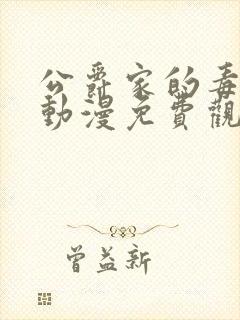 公爵家的毒
動漫免費觀
曾益新